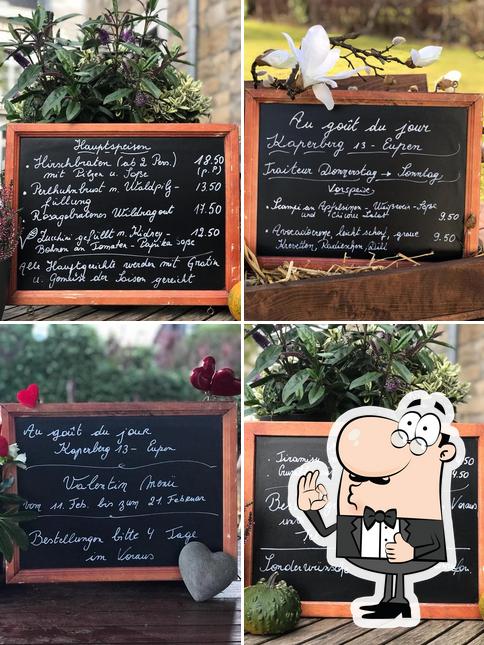 Hauptspeisen
• Hirschbraten (ab 2 Pers.) 18.50
mit Pilzen u. Soße (p. P)
• Perlhuhnbrust m. Waldpilz- 13.50
füllung
Rosagebratenes Wildragout 17.50
Zucchini gefüllt m. Kidney- 12.50
Bohnen an Tomaten-Paprika soße
Alle Hauptgerichte werden mit Gratin
u. Gemüse der Saison gereicht
Au goût du jour
Kaperberg 13 - Eupen
Traiteur Donnerstag → Sonntag
Vorspeise:
• Scampi an Apfelsinen - Weißwein - Soße
und Chicorée Salat 9.50
• Avocadocreme, leicht scharf, graue 9.50
Krevetten, Radieschen, Dill
Au goût du jour
Kaperberg 13 - Eupen
Valentin Menü
vom 11. Feb. bis zum 21 Februar
Bestellungen bitte 4 Tage
im Voraus
• Tiramisu
4.50
Voraus
Sonderwünsche